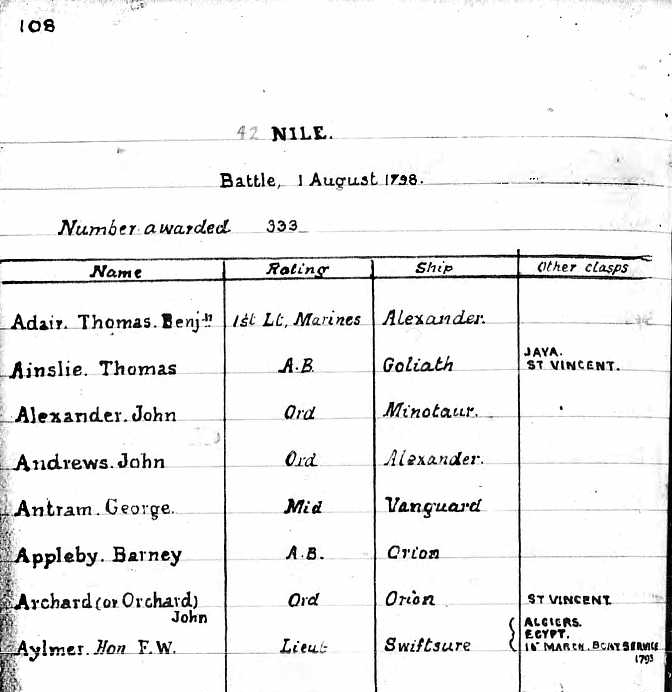 108
42 NILE.
Battle, 1 August 1798.
Number awarded 333
Name Rating Ship Other clasps
Adair. Thomas. Benjn 1st Lt, Marines Alexander.
Ainslie. Thomas A.B. Goliath JAVA. ST VINCENT.
Alexander. John Ord Minotaur.
Andrews. John Ord Alexander.
Antram. George. Mid Vanguard
Appleby. Barney A.B. Orion
Archard (or Orchard) John Ord Orion ST VINCENT
Aylmer. Hon F.W. Lieut Swiftsure ALGIERS. EGYPT. MARCH. BOAT SERVICE